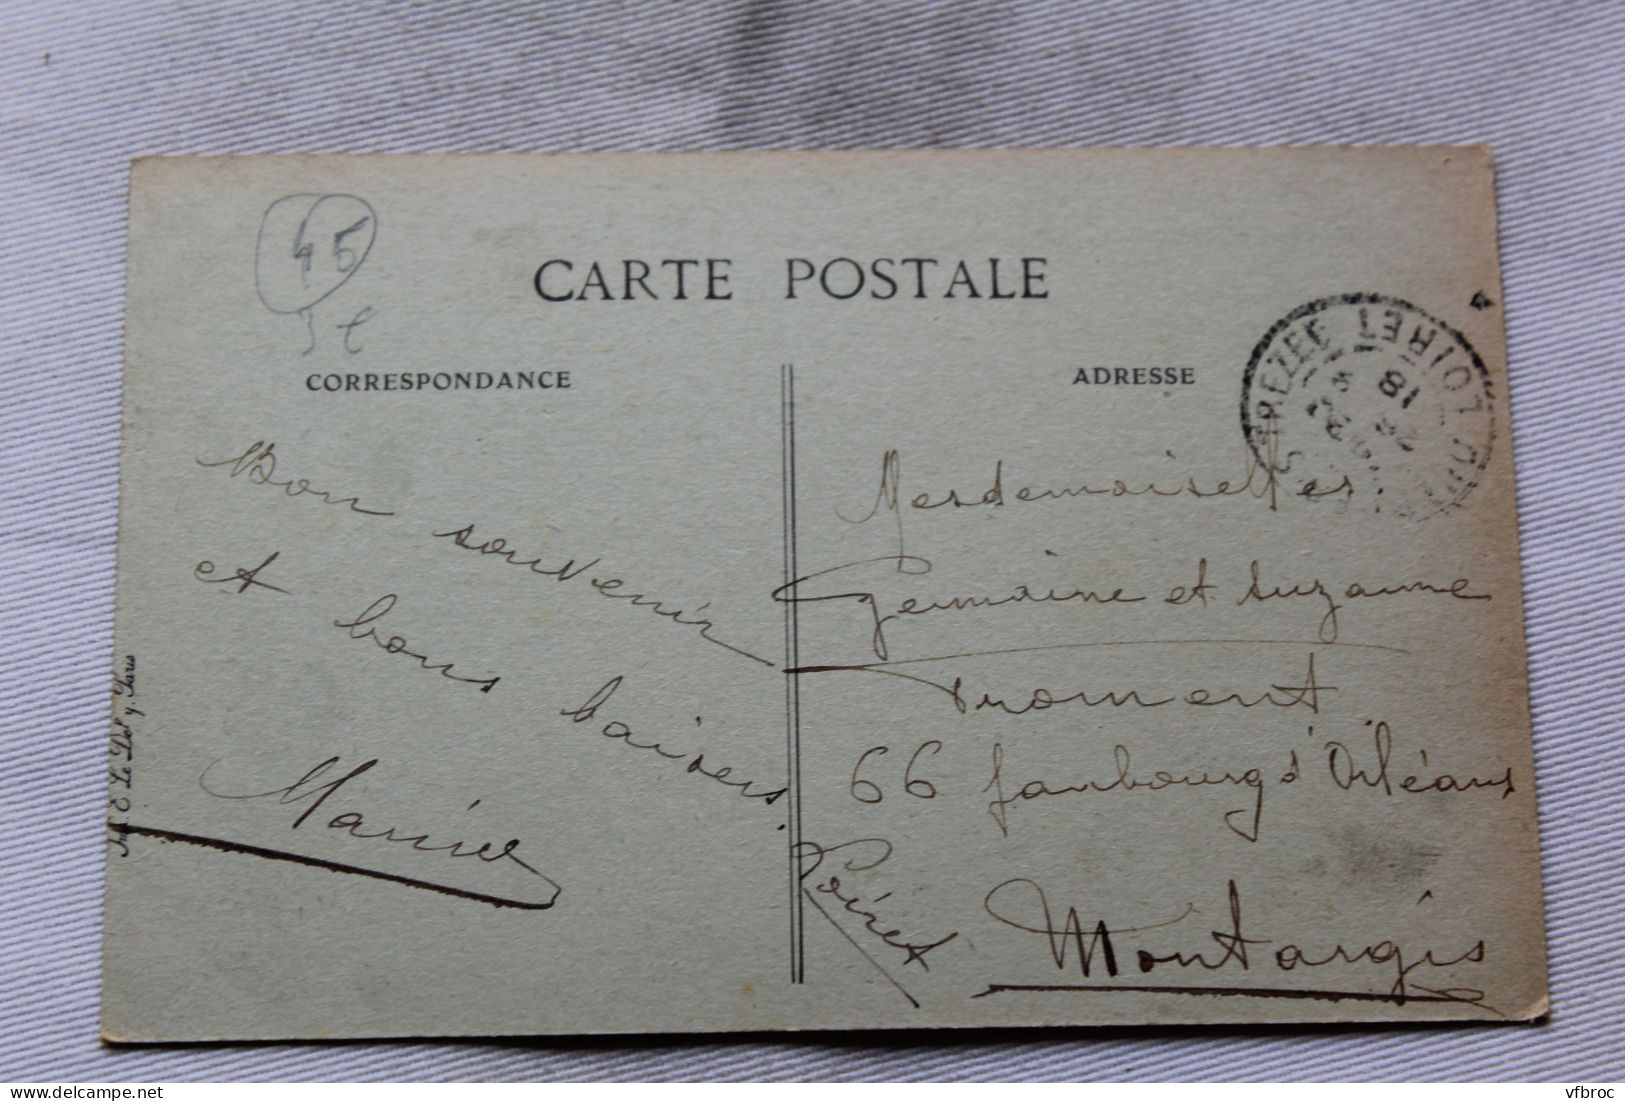 45
3€
CARTE POSTALE
CORRESPONDANCE
ADRESSE
TREZEE
LOIRET
18
Bon souvenir
et bons baisers.
Marie
Mesdemoiselles.
Germaine et Suzanne
Froment
66 faubourg d'Orléans
Loiret
Montargis
Imp. E. Le Deley, Paris
vfbroc